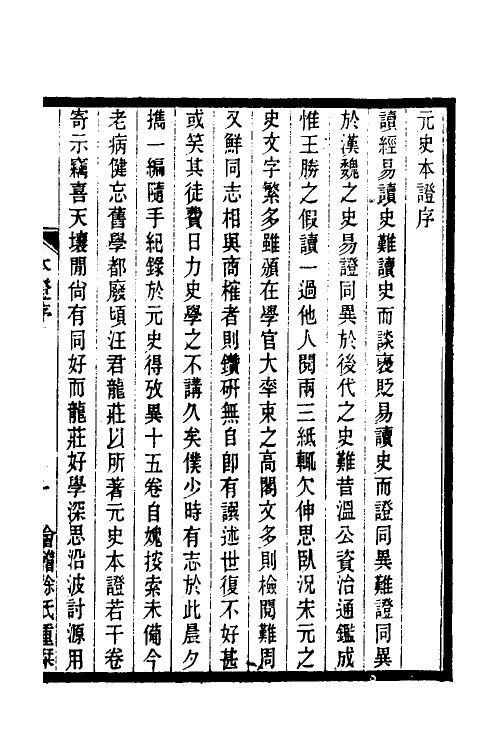 元史本證序
讀經易讀史難讀史而談襃貶易讀史而證同異難證同異
於漢魏之史易證同異於後代之史難昔溫公資治通鑑成
惟王勝之假讀一過他人閱兩三紙輒欠伸思臥況宋元之
史文字繁多雖頒在學官大率束之高閣文多則檢閱難周
又鮮同志相與商榷者則鑽硏無自卽有譔述世復不好甚
或笑其徒費日力史學之不講久矣僕少時有志於此晨夕
攜一編隨手紀錄於元史得攷異十五卷自媿挍索未備今
老病健忘舊學都廢頃汪君龍莊以所著元史本證若干卷
寄示竊喜天壤閒尙有同好而龍莊好學深思沿波討源用
本證序
一
會稽徐氏重栞